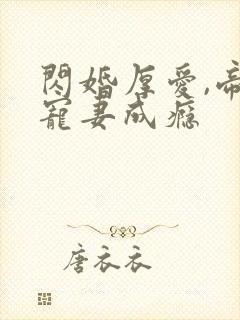 閃婚厚愛,帝
寵妻成癮
唐衣衣